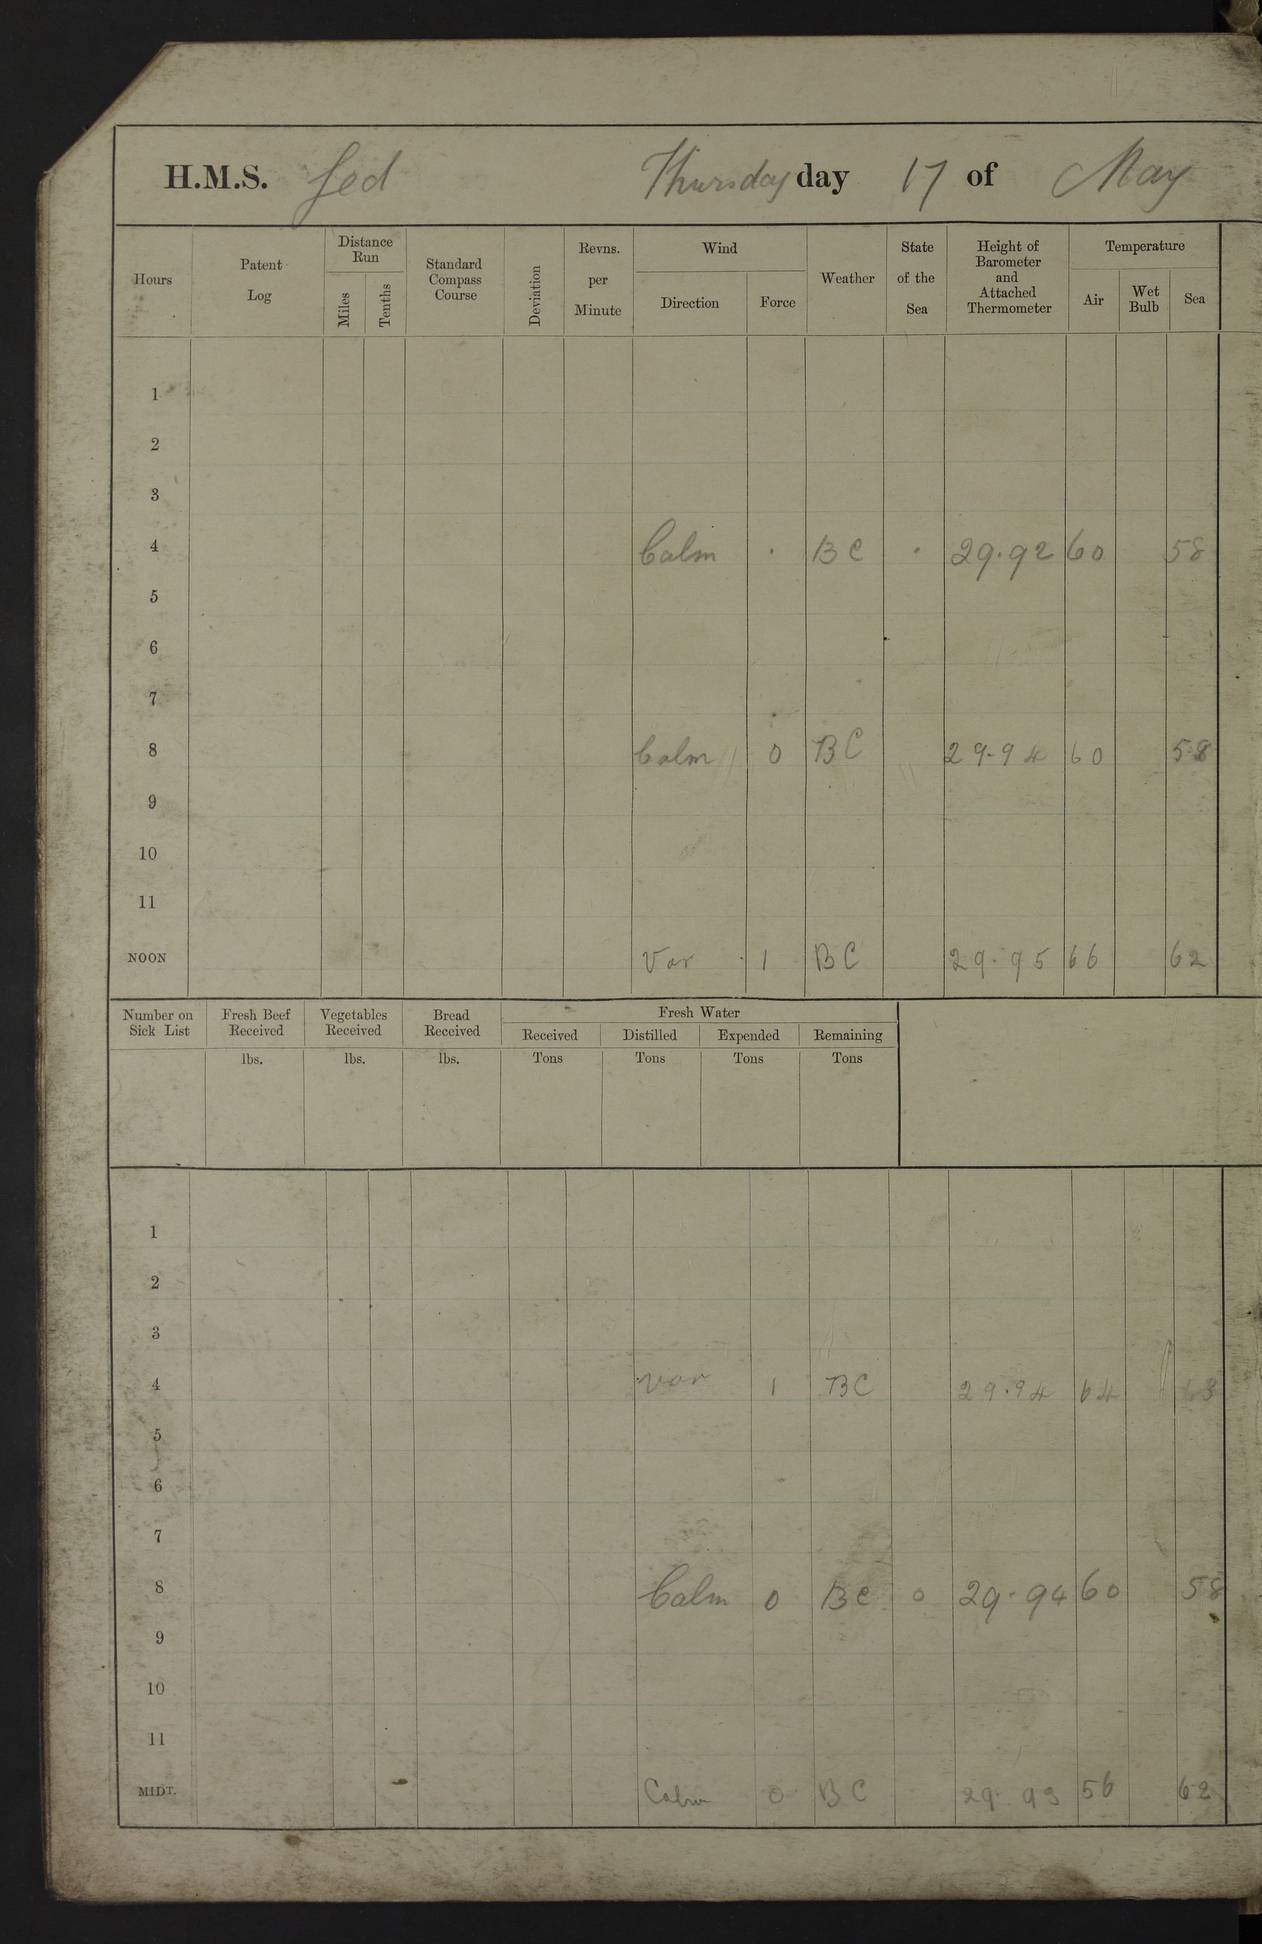 H.M.S. Jed Thursday day 17 of May
Hours Patent Log Distance Run Miles Tenths Standard Compass Course Deviation Revns. per Minute Wind Direction Force Weather State of the Sea Height of Barometer and Attached Thermometer Temperature Air Wet Bulb Sea
1
2
3
4 Calm . BC . 29.92 60 58
5
6
7
8 Calm 0 BC 29.94 60 58
9
10
11
NOON Var 1 BC 29.95 66 62
Number on Sick List Fresh Beef Received Vegetables Received Bread Received Fresh Water
Received Distilled Expended Remaining
lbs. lbs. lbs. Tons Tons Tons Tons
1
2
3
4 Var 1 BC 29.94 64 63
5
6
7
8 Calm 0 BC 0 29.94 60 58
9
10
11
MIDT. Calm 0 BC 29.93 56 62